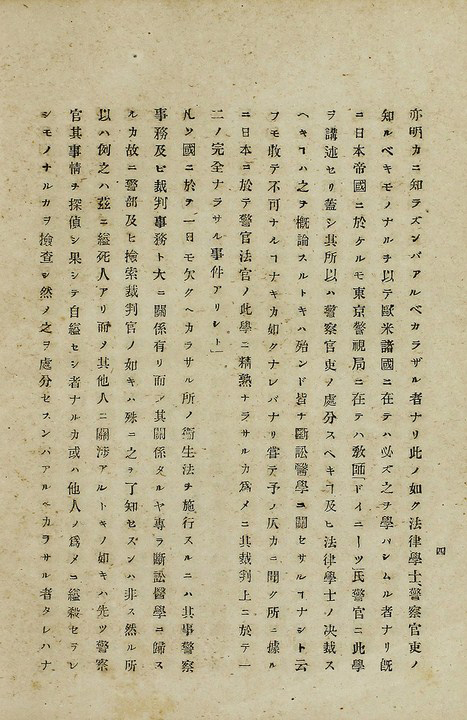 亦明カニ知ラズンバアルベカラザル者ナリ此ノ如ク法律學士、警察官吏ノ
知ルベキモノナルヲ以テ歐米諸國ニ在テハ必ズ之ヲ學バシムル者ナリ既
ニ日本帝國ニ於ケルモ東京警視局ニ在テハ敎師「ドイニーツ」氏警官ニ此學
ヲ講述セリ蓋シ其所以ハ警察官吏ノ處分スヘキヿ及ヒ法律學士ノ决裁ス
ヘキヿハ之ヲ概論スルトキハ殆ンド皆ナ斷訟醫學ニ關セサルヿナシト云
フモ敢テ不可ナルヿナキカ如クナレバナリ嘗テ予ノ仄カニ聞ク所ニ據ル
ニ日本ニ於テ警官法官ノ此學ニ精熟ナラサルカ爲メニ其裁判上ニ於テ一
二ノ完全ナラサル事件アリシト」
凡ソ國ニ於テ一日モ欠クヘカラサル所ノ衞生法ヲ施行スルニハ其事警察
事務及ビ裁判事務ト大ニ關係有リ而シテ其關係タルヤ專ラ斷訟醫學ニ歸ス
ルカ故ニ警部及ヒ檢索裁判官ノ如キハ殊ニ之ヲ了知セズンハ非ス然ル所
以ハ例之ハ茲ニ縊死人アリ而メ其他人ニ關渉アルトキノ如キハ先ツ警察
官其事情ヲ探偵シ果シテ自縊セシ者ナルカ或ハ他人ノ爲メニ縊殺セラレ
シモノナルカヲ檢査シ然ノ之ヲ處分セズンハアルベカラサル者タレハナ
四